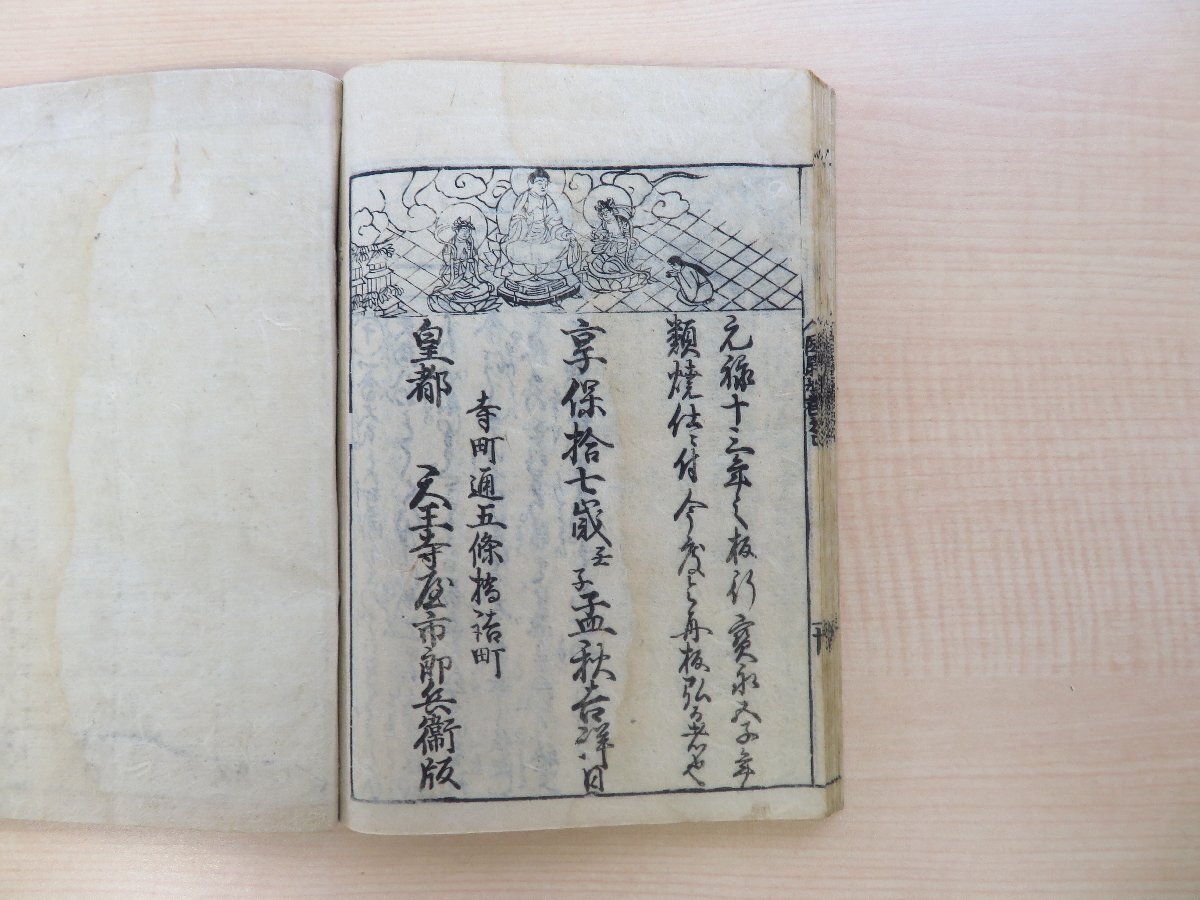 元禄十三年之板行寳永五子年
類焼仕ニ付今度令再板弘者也
享保拾七歳壬子孟秋吉祥日
寺町通五條橋詰町
皇都　天王寺屋市郎兵衞版